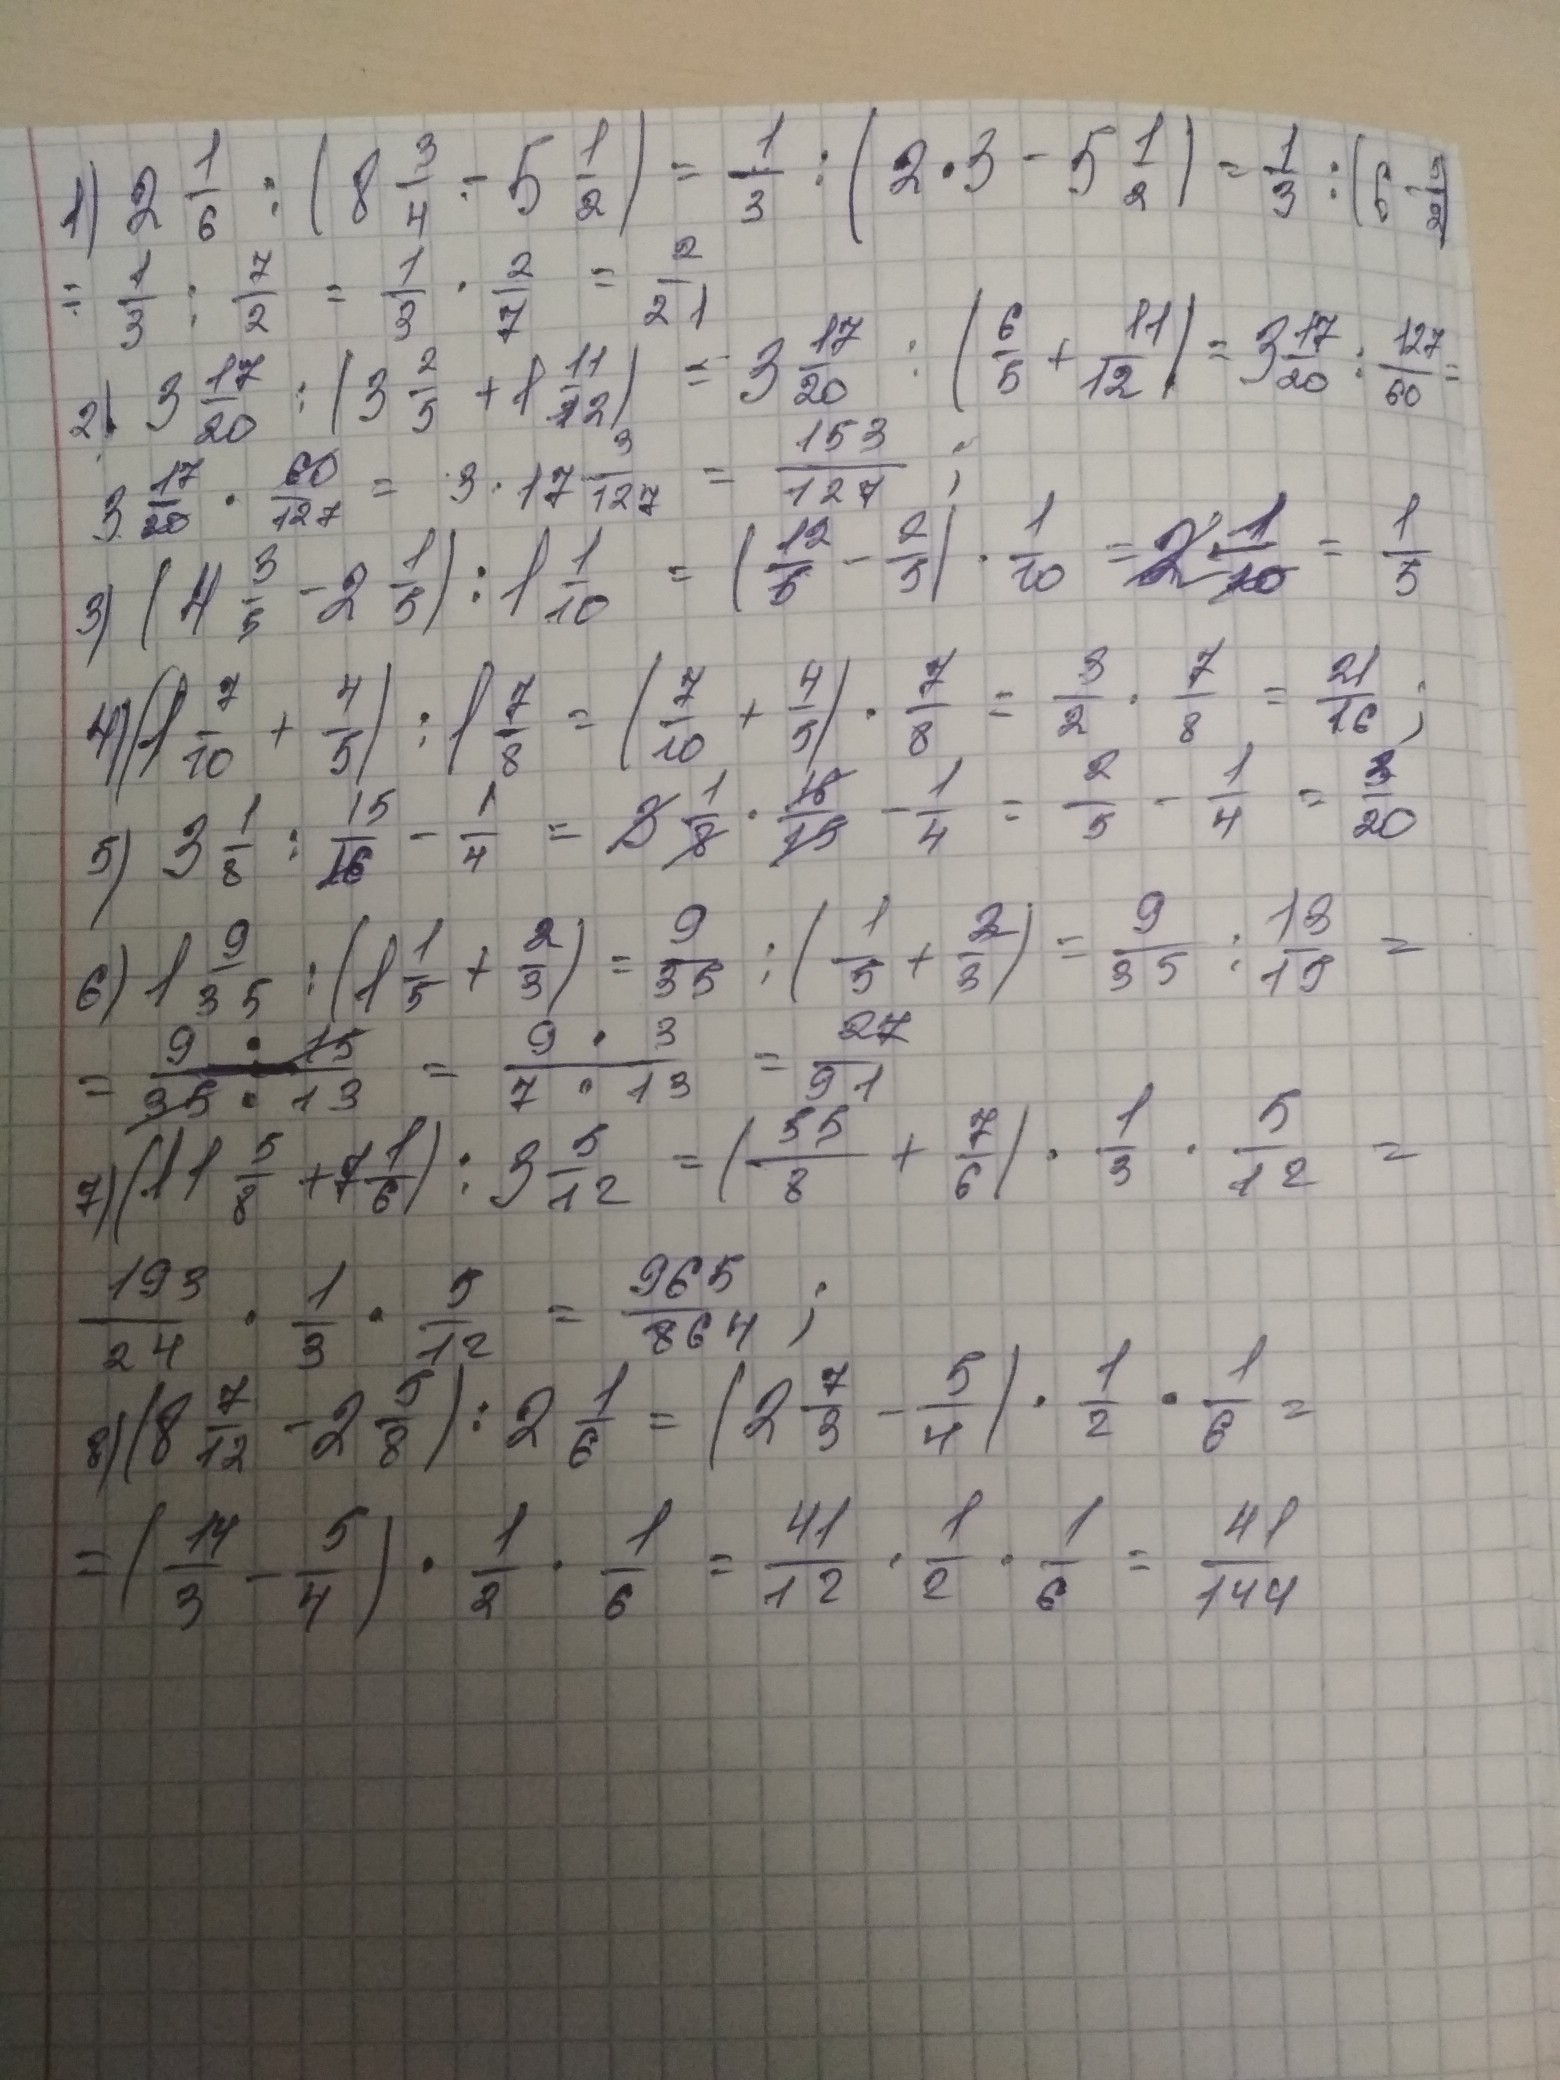 1) 2 1/6 : (8 3/4 - 5 1/2) = 1/3 : (2 · 3 - 5 1/2) = 1/3 : (6 - 5/2)
= 1/3 : 7/2 = 1/3 · 2/7 = 2/21
2) 3 17/20 : (3 2/5 + 1 11/12) = 3 17/20 : (6/5 + 11/12) = 3 17/20 : 127/60 =
3 17/20 · 60/127 = 3 · 17 3/127 = 153/127 ;
3) (4 3/5 - 2 1/5) : 1 1/10 = (12/5 - 2/5) · 1/10 = 2 · 1/10 = 1/5
4) (1 7/10 + 4/5) : 1 7/8 = (7/10 + 4/5) · 7/8 = 3/2 · 7/8 = 21/16 ;
5) 3 1/8 : 15/16 - 1/4 = 3 1/8 · 16/15 - 1/4 = 2/5 - 1/4 = 3/20
6) 1 9/35 : (1 1/5 + 2/3) = 9/35 : (1/5 + 2/3) = 9/35 : 13/15 =
= 9 · 15/35 · 13 = 9 · 3/7 · 13 = 27/91
7) (11 5/8 + 7 1/6) : 3 5/12 = (55/8 + 7/6) · 1/3 · 5/12 =
193/24 · 1/3 · 5/12 = 965/864 ;
8) (8 7/12 - 2 5/8) : 2 1/6 = (2 7/3 - 5/4) · 1/2 · 1/6 =
= (14/3 - 5/4) · 1/2 · 1/6 = 41/12 · 1/2 · 1/6 = 41/144